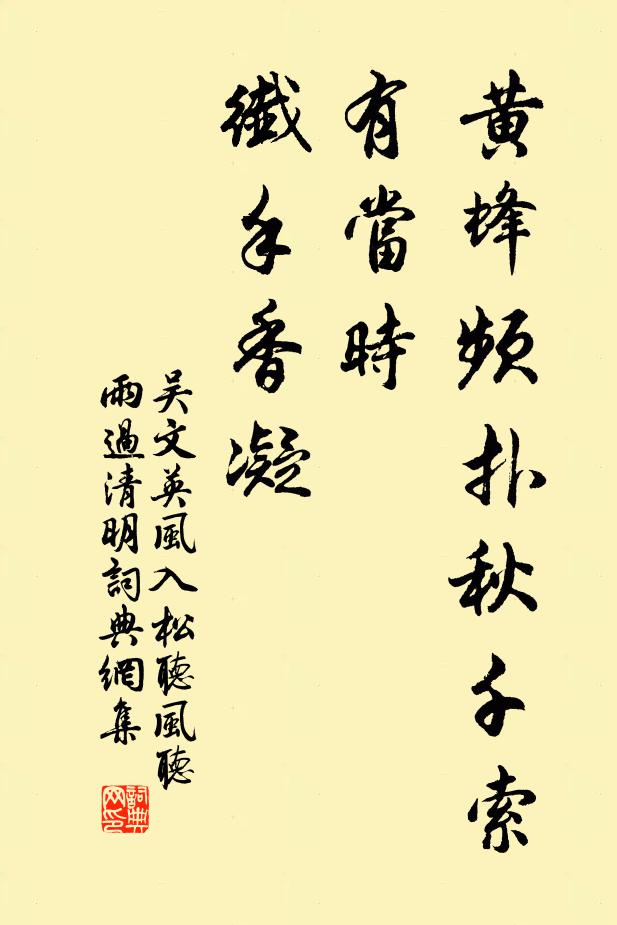 黄蜂頻扑秋千索
有當時
纖手香凝
吴文英風入松聽風聽
雨過清明詞典網集
詞典
网印